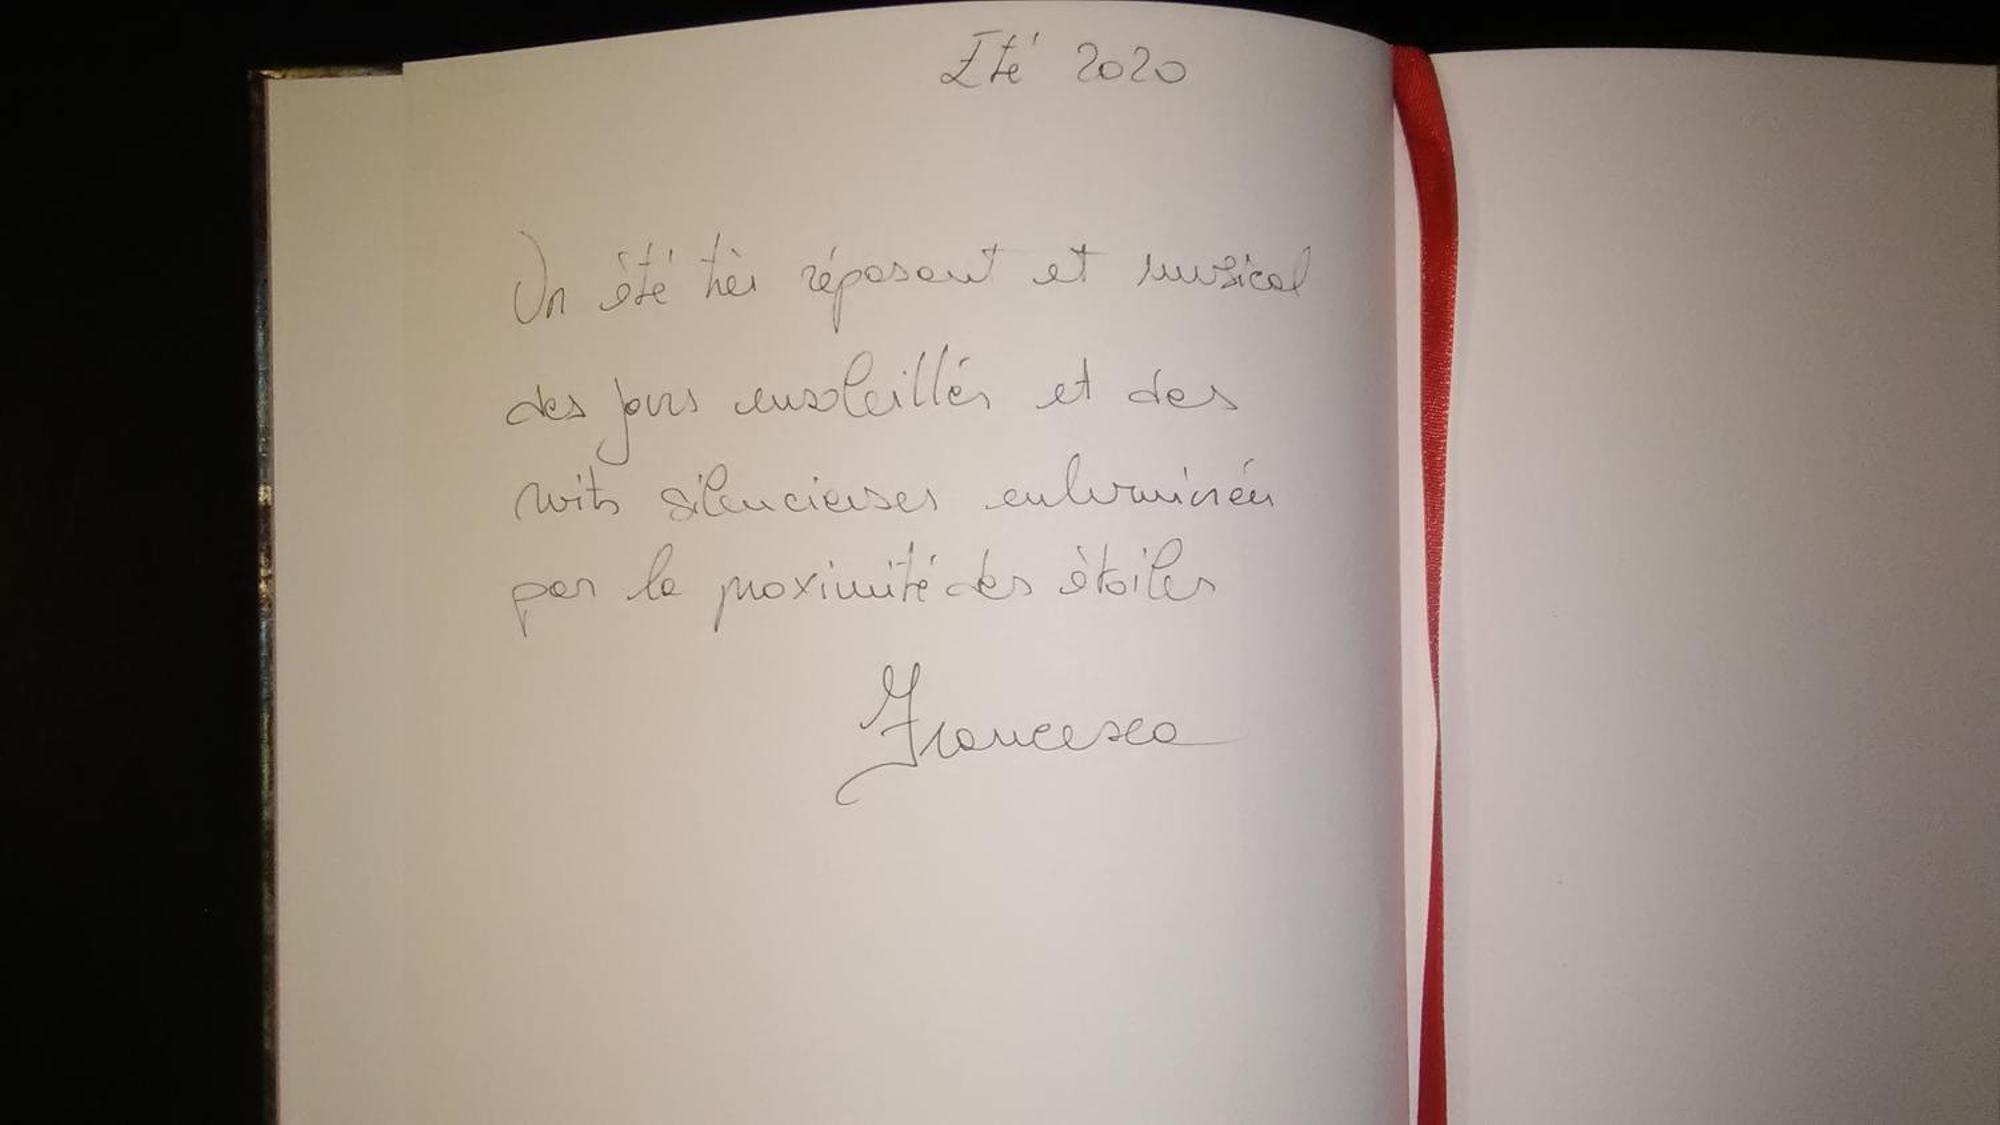 Eté 2020
Un été très réposant et musical
des jours ensoleillés et des
nuits silencieuses enluminées
par la proximité des étoiles
Francesca